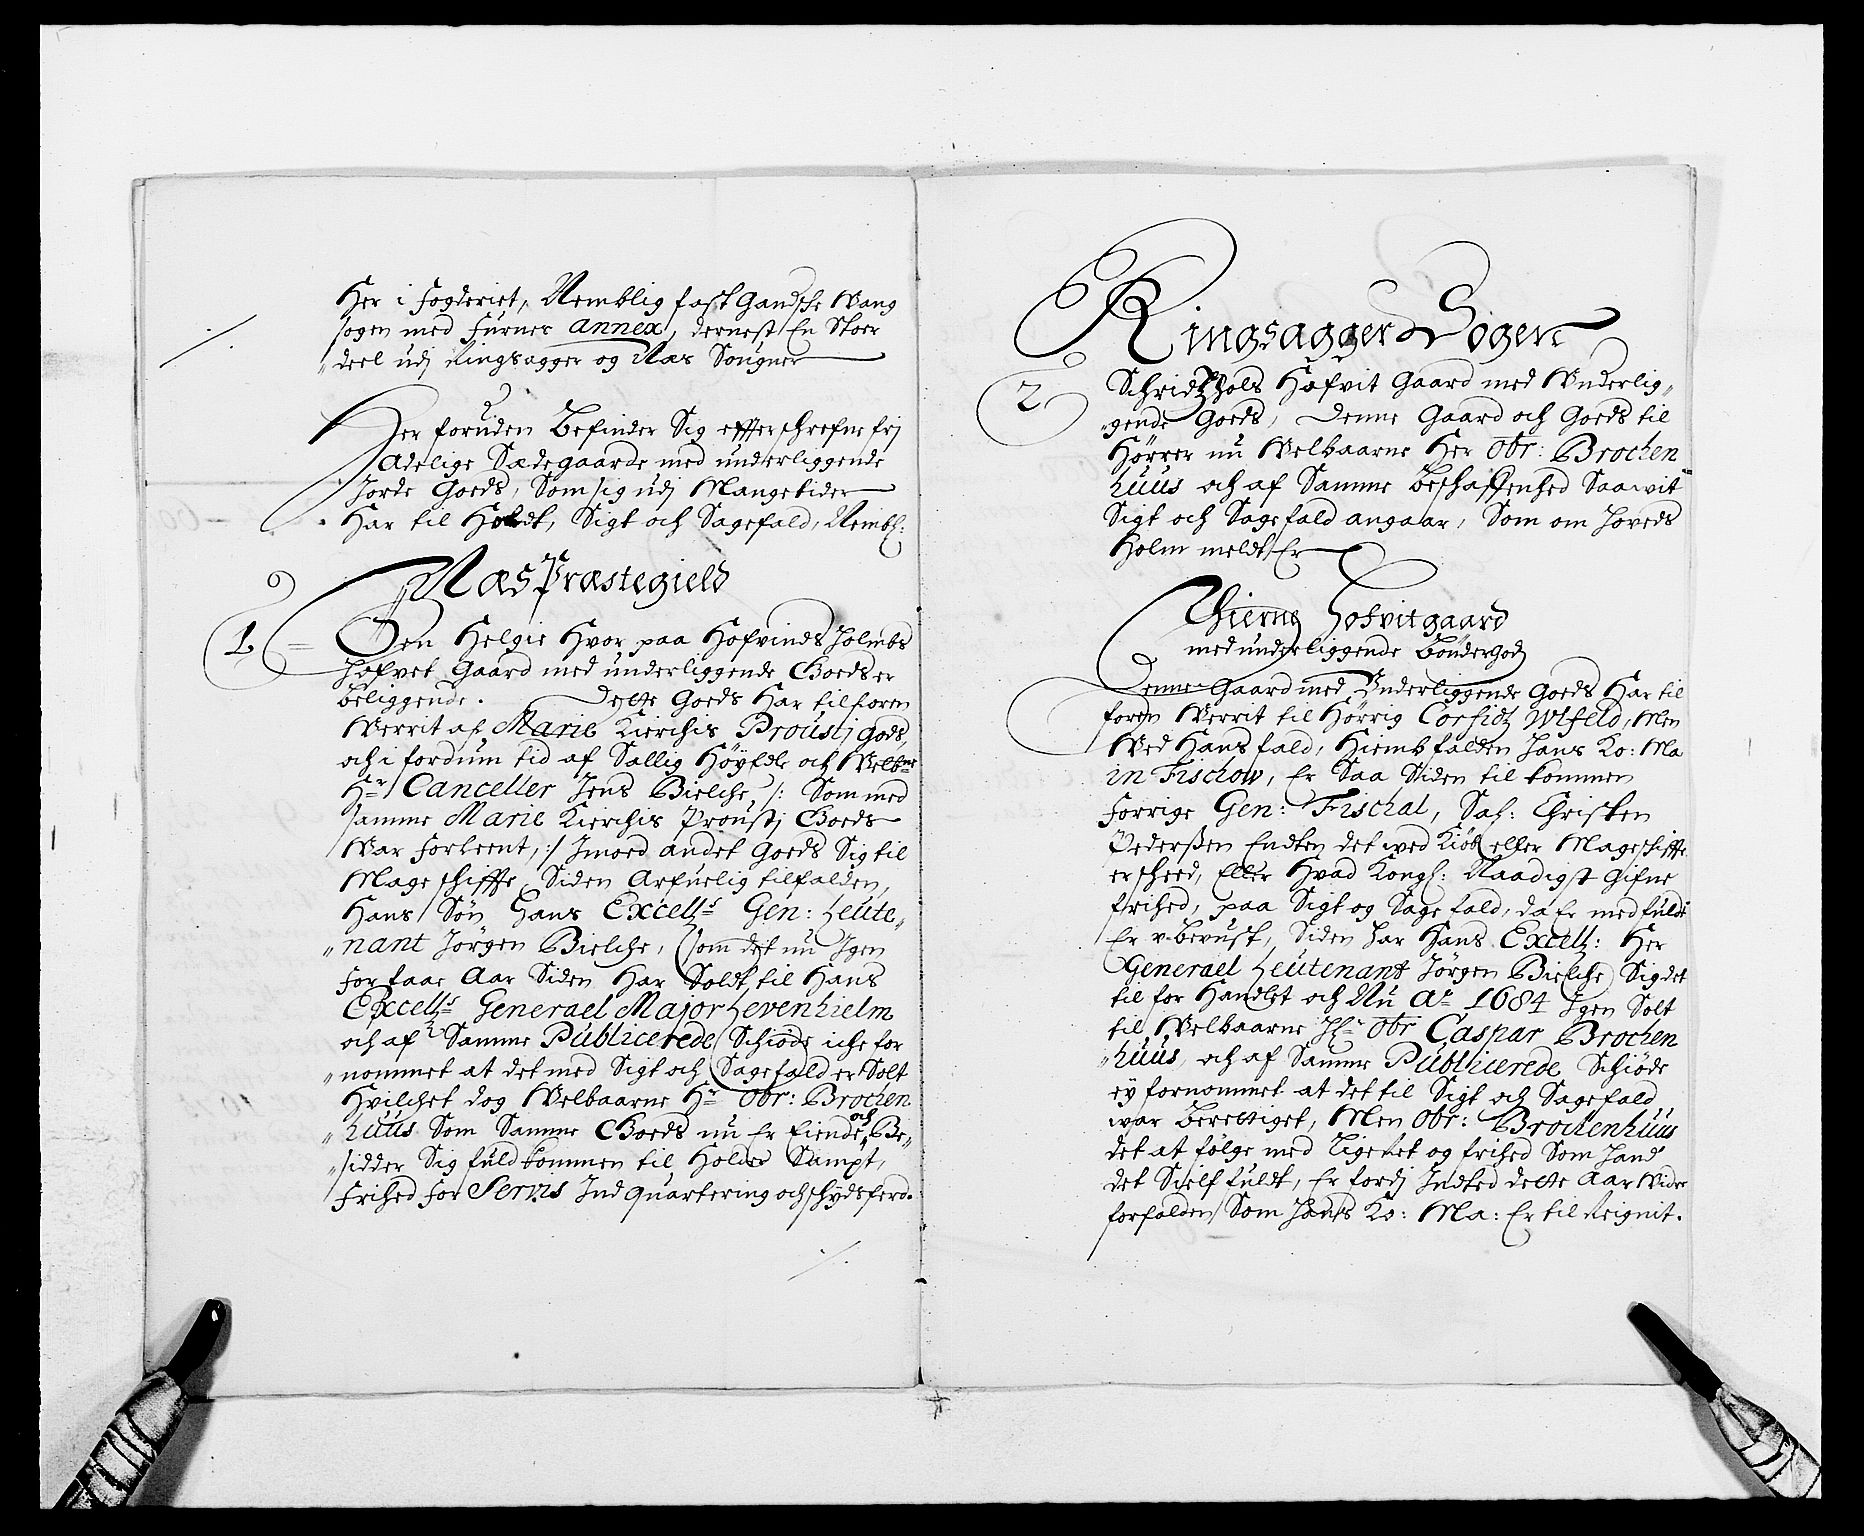 Her i fogderiet, Nemblig fast Gandsche Wang
sogen med Furnes Annex, dernest En Stoer
deel udj Ringsagger og Næs Sougner
Her foruden Befinder Sig efferschrefne frj
Adelige Sædegaarde med underliggende
Jorde Goeds, Som sig udj Mangetider
Har til Holdt, Sigt och Sagefald, Nembl:
Næs Præstegield
1 Den Helgie Hvor paa Hofvinds Holmbs
Hofvet Gaard med underliggende Goeds er
beliggende. Dette Goeds Har tilforen
Werrit af Marie Kierchis Proustj Gods,
och i fordum tid af Sallig Höyedle och Welbne
Hr Canceller Jens Bielche /: Som med
samme Marie Kierchis Proustj Goeds
War forleent, :/ Jmoed andet Goeds Sig til
Mageschiffte, Siden Arfuelig tilfalden,
Hans Søn Hans Excells Gen: Leute„
„nant Jørgen Bielche, som det nu Igen
for faae Aar Siden Har Soldt til Hans
Excells Generael Major Levenhielm
och af Samme Publicerede Schiöde iche for
„nommet at det med Sigt och Sagefald er Solt
Hvilchet dog Welbaarne Hr Obr: Brochen
„huus Som Samme Goeds nu Er Eiende och Be„
„sidder Sig fuldkommen til Holder Sampt,
Frihed for Servis Indquartering och schydsferd.
Ringsagger Sogen
2 Schridtzhols Hofvit Gaard med Underlig„
„gende Goeds, Denne Gaard och Goeds til
Hörrer nu Welbaarne Her Obr: Brochen
huus och af Samme Beschaffenhed Saawit
Sigt och Sagefald angaar, Som om Hoveds
Holm meldt Er
Thierne Hofvitgaard
med underliggende Böndergods
Denne Gaard med Underliggende Goeds Har til
foren Werrit til Hörrig Corfidtz Wlfeld, Men
Wed Hans fald, Hiemb falden Hans Ko: Ma
in Fischow, Er Saa Siden til kommen
Forrige Gen: Fischal, Sal: Christen
Pederßen Endten det wed Kiöb eller Mageschiffte
er scheed, Eller Hvad Kongl: Naadigst Gifne
frihed, paa Sigt og Sagefald, da Er med fulde
Er v-bevust, Siden Har Hans Excell: Her
Generael Leutenant Jörgen Bielche Sig det
til for Handlet och Nu Ao 1684 Igen Solt
til Welbaarne Hr Obr Caspar Brochen
„huus, och af Samme Publicerede Schiöde
ey fornommet at det til Sigt och Sagefald
war berettiget, Men Obr: Brochenhuus
det at fölge med Ligehet og frihed Som Hand
det Sielf fuldt, Er fordj Indted dette Aar Wider
forfalden Som Hans Ko: Ma: Er til Reignit.